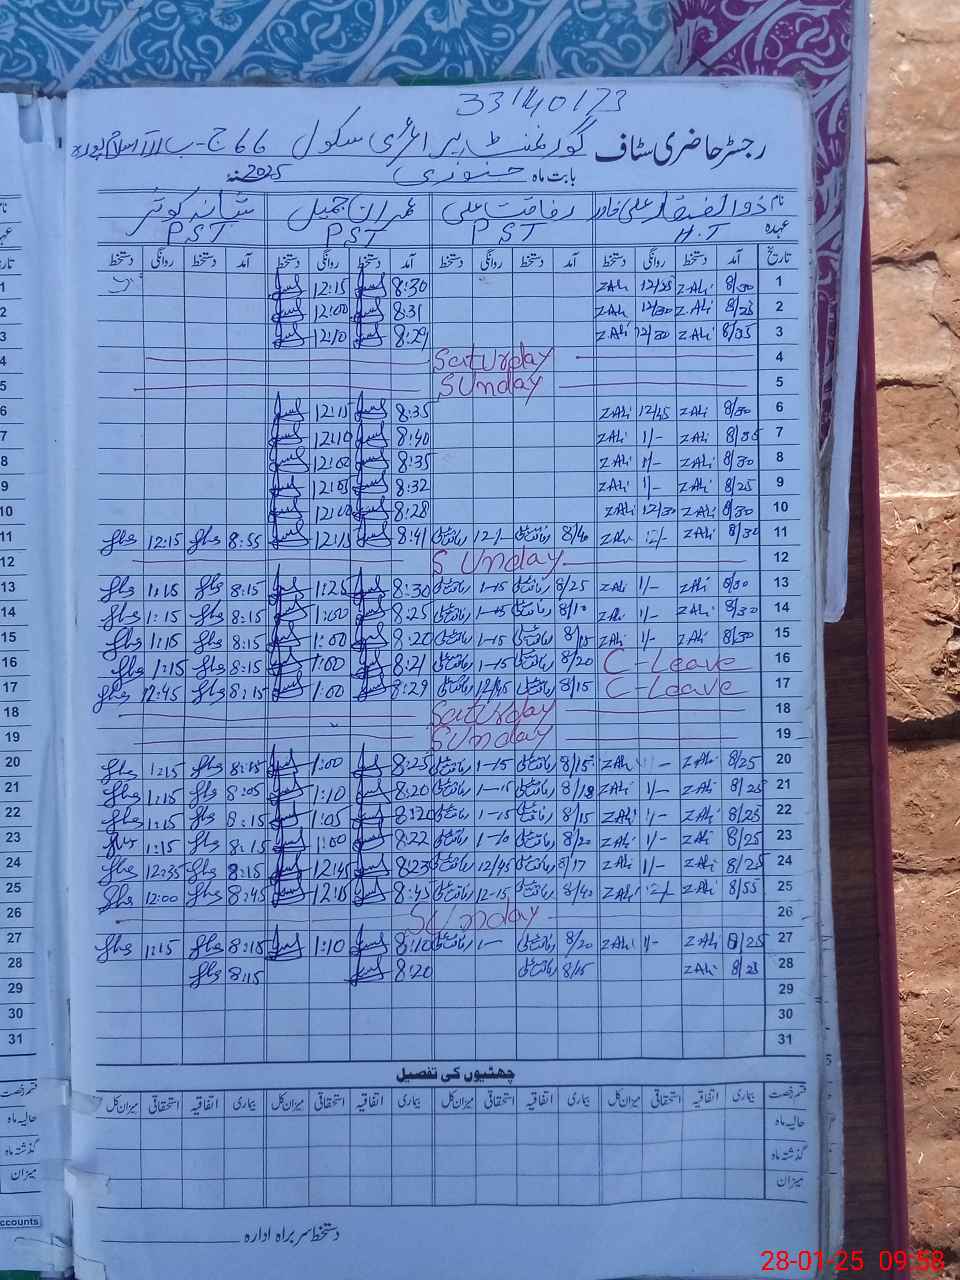 33140173
رجسٹر حاضری سٹاف گورنمنٹ پرائمری سکول 66 ج-ب
بابت ماہ جنوری 2025
نام ذوالفقار علی رفاقت علی عمران جمیل شبانہ کوثر
عہدہ H.T PST PST PST
تاریخ آمد دستخط روانگی دستخط آمد دستخط روانگی دستخط آمد دستخط روانگی دستخط آمد دستخط روانگی دستخط
1 8/30 ZAli ZAli 8:30 12:15
2 ZAli 12/30 ZAli 8:31 12:00
3 8/35 ZAli 12/30 ZAli 8:29
4 Saturday
5 Sunday
6 8/30 ZAli 12/45 ZAli 8:35 12:15
7 8/35 ZAli 1/- ZAli 8:40 12:10
8 8/30 ZAli 1/- ZAli 8:35 12:00
9 8/25 ZAli 1/- ZAli 8:32 12:05
10 8/30 ZAli 12/30 ZAli 8:28 12:00
11 8/30 ZAli 12/- ZAli 8/40 رفاقت علی 12/- رفاقت علی 8:41 12:15 8:55 12:15
12 Sunday
13 8/30 ZAli 1/- ZAli 8/25 رفاقت علی 1-15 رفاقت علی 8:30 1:25 8:15 1:15
14 8/30 ZAli 1/- ZAli رفاقت علی رفاقت علی 8:25 1:00 8:15 1:15
15 8/30 ZAli 1/- ZAli 8/15 رفاقت علی 1-15 رفاقت علی 8:20 1:00 8:15 1:15
16 C-Leave 8/20 رفاقت علی 1-15 رفاقت علی 8:21 1:00 8:15 1:15
17 C-Leave 8/15 رفاقت علی 12/45 رفاقت علی 8:29 1:00 8:15 12:45
18 Saturday
19 Sunday
20 8/25 ZAli ZAli 8/15 رفاقت علی 1-15 رفاقت علی 8:25 1:00 8:15 1:15
21 8/25 ZAli 1/- ZAli 8/18 رفاقت علی 1-15 رفاقت علی 8:20 1:10 8:05 1:15
22 8/25 ZAli 1/- ZAli 8/15 رفاقت علی 1-15 رفاقت علی 8:20 1:05 8:15 1:15
23 8/25 ZAli 1/- ZAli 8/20 رفاقت علی 1-10 رفاقت علی 8:22 1:00 8:15 1:15
24 8/25 ZAli 1/- ZAli 8/17 رفاقت علی 12/45 رفاقت علی 8:23 12:45 8:15 12:35
25 8/55 ZAli 12/- ZAli 8/40 رفاقت علی 12-15 رفاقت علی 8:45 12:15 8:45 12:00
26 Sunday
27 8/25 ZAli 1/- ZAli 8/20 رفاقت علی 1- رفاقت علی 8:10 1:10 8:15 1:15
28 8/25 ZAli 8/15 رفاقت علی 8:20 8:15
29
30
31
چھٹیوں کی تفصیل
قسم رخصت بیماری اتفاقیہ استحقاقی میزان کل بیماری اتفاقیہ استحقاقی میزان کل بیماری اتفاقیہ استحقاقی میزان کل بیماری اتفاقیہ استحقاقی میزان کل
حالیہ ماہ
گذشتہ ماہ
میزان
دستخط سربراہ ادارہ
ccounts
28-01-25 09:58